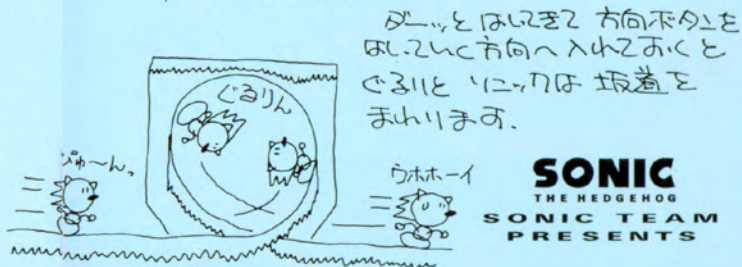 ダーッと はしってきて 方向ボタンを
はしっていく方向へ 入れておくと
ぐるりと ソニックは 坂道を
まわります.
ぐるりん
びゅ〜ん。
ウホホーイ
SONIC
THE HEDGEHOG
SONIC TEAM
PRESENTS